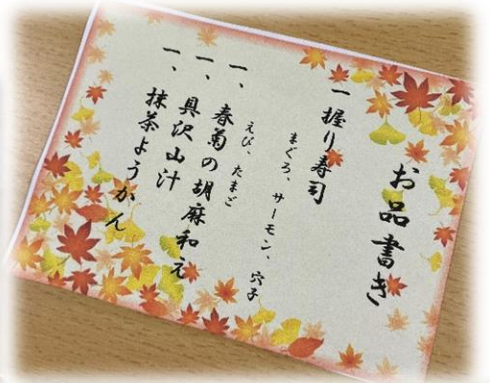 お品書き
一握り寿司
まぐろ、サーモン、穴子
えび、たまご
一、春菊の胡麻和え
一、具沢山汁
一、抹茶ようかん